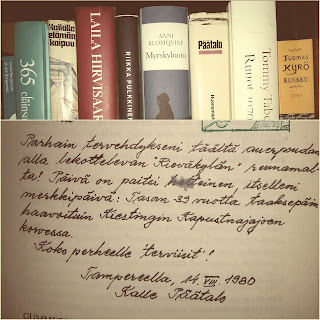 365
elämän
Kaikille
elämän
kaipuu
LAILA HIRVISAARI
RIIKKA PULKKINEN
ANNI
BLOMQVIST
Myrskyluoto
Päätalo
Tommy Tabe
Runot
TUOMAS
KYRÖ
KUNKKU
Parhain tervehdykseni täältä auerpoudan
alla lekottelevan "Kieväkylän" reunamal-
ta! Päivä on paitsi helteinen, itselleni
merkkipäivä: Tasan 39 vuotta taaksepäin
haavoituin Kiestingin Kapustnajajoen
korvessa.
Koko perheelle "terviisit"!
Tampereella, 14. VIII. 1980
Kalle Päätalo
GUMMER